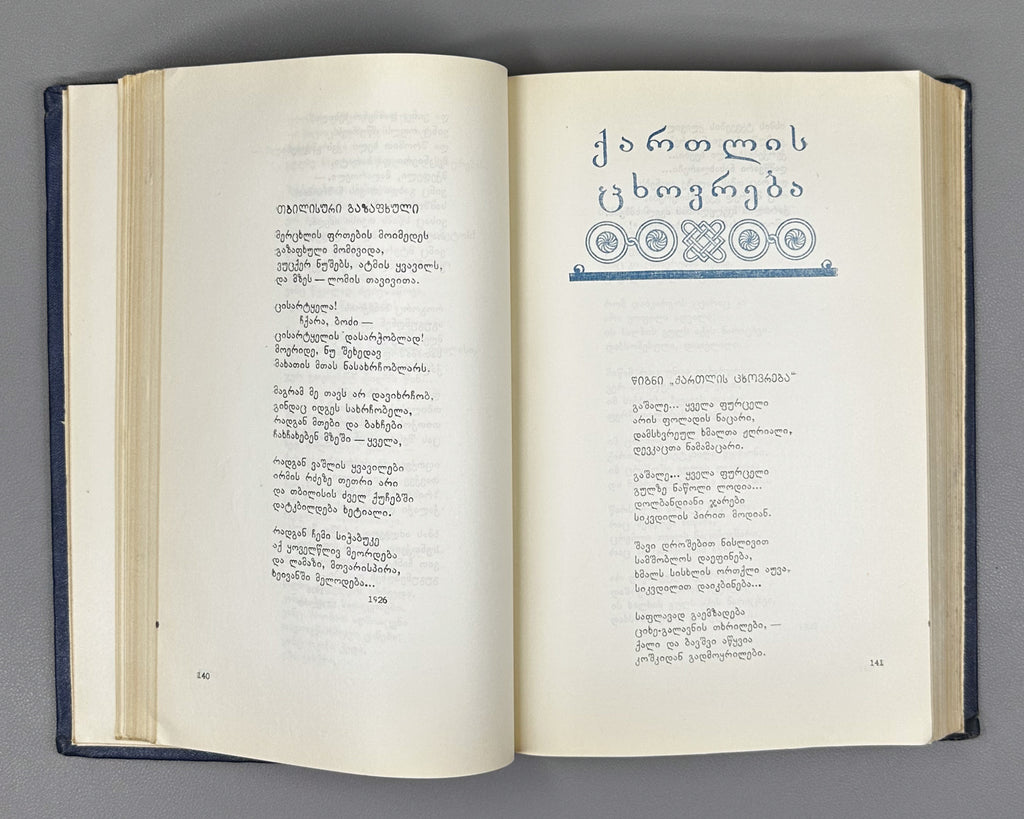 თბილისური გაზაფხული
მერცხლის ფრთების მოიმედეს
გაზაფხული მომივიდა,
ვუცქერ ნუშებს, ატმის ყვავილს,
და მზეს — ლომის თავივითა.
ცისარტყელა!
ჩქარა, ბოძი —
ცისარტყელის დასარჭობლად!
მოერიდე, ნუ შეხედავ
მახათის მთას ნასახრჩობლარს.
მაგრამ მე თავს არ დავიხრჩობ,
გინდაც იდგეს სახრჩობელა,
რადგან მთები და ბახჩები
ჩახჩახებენ მზეში — ყველა,
რადგან ვაშლის ყვავილები
ირმის რძეზე თეთრი არი
და თბილისის ძველ ქუჩებში
დატკბილდება ხეტიალი.
რადგან ჩემი სიჭაბუკე
აქ ყოველწლივ მეორდება
და ლამაზი, მთვარისპირა,
ხეივანში მელოდება...
1926
140
ქართლის
ცხოვრება
წიგნი „ქართლის ცხოვრება“
გაშალე... ყველა ფურცელი
არის ფოლადის ნაცარი,
დამსხვრეულ ხმალთა ჟღრიალი,
დევკაცთა ნამამაცარი.
გაშალე... ყველა ფურცელი
გულზე ნაწოლი ლოდია...
დოლბანდიანი ჯარები
სიკვდილის პირით მოდიან.
შავი დროშებით ნისლივით
სამშობლოს დაეფინება,
ხმალს სისხლის ორთქლი აუვა,
სიკვდილით დაიკბინება...
საფლავად გაემზადება
ციხე-გალავნის თხრილები, —
ქალი და ბავშვი აწყვია
კოშკიდან გადმოყრილები.
141